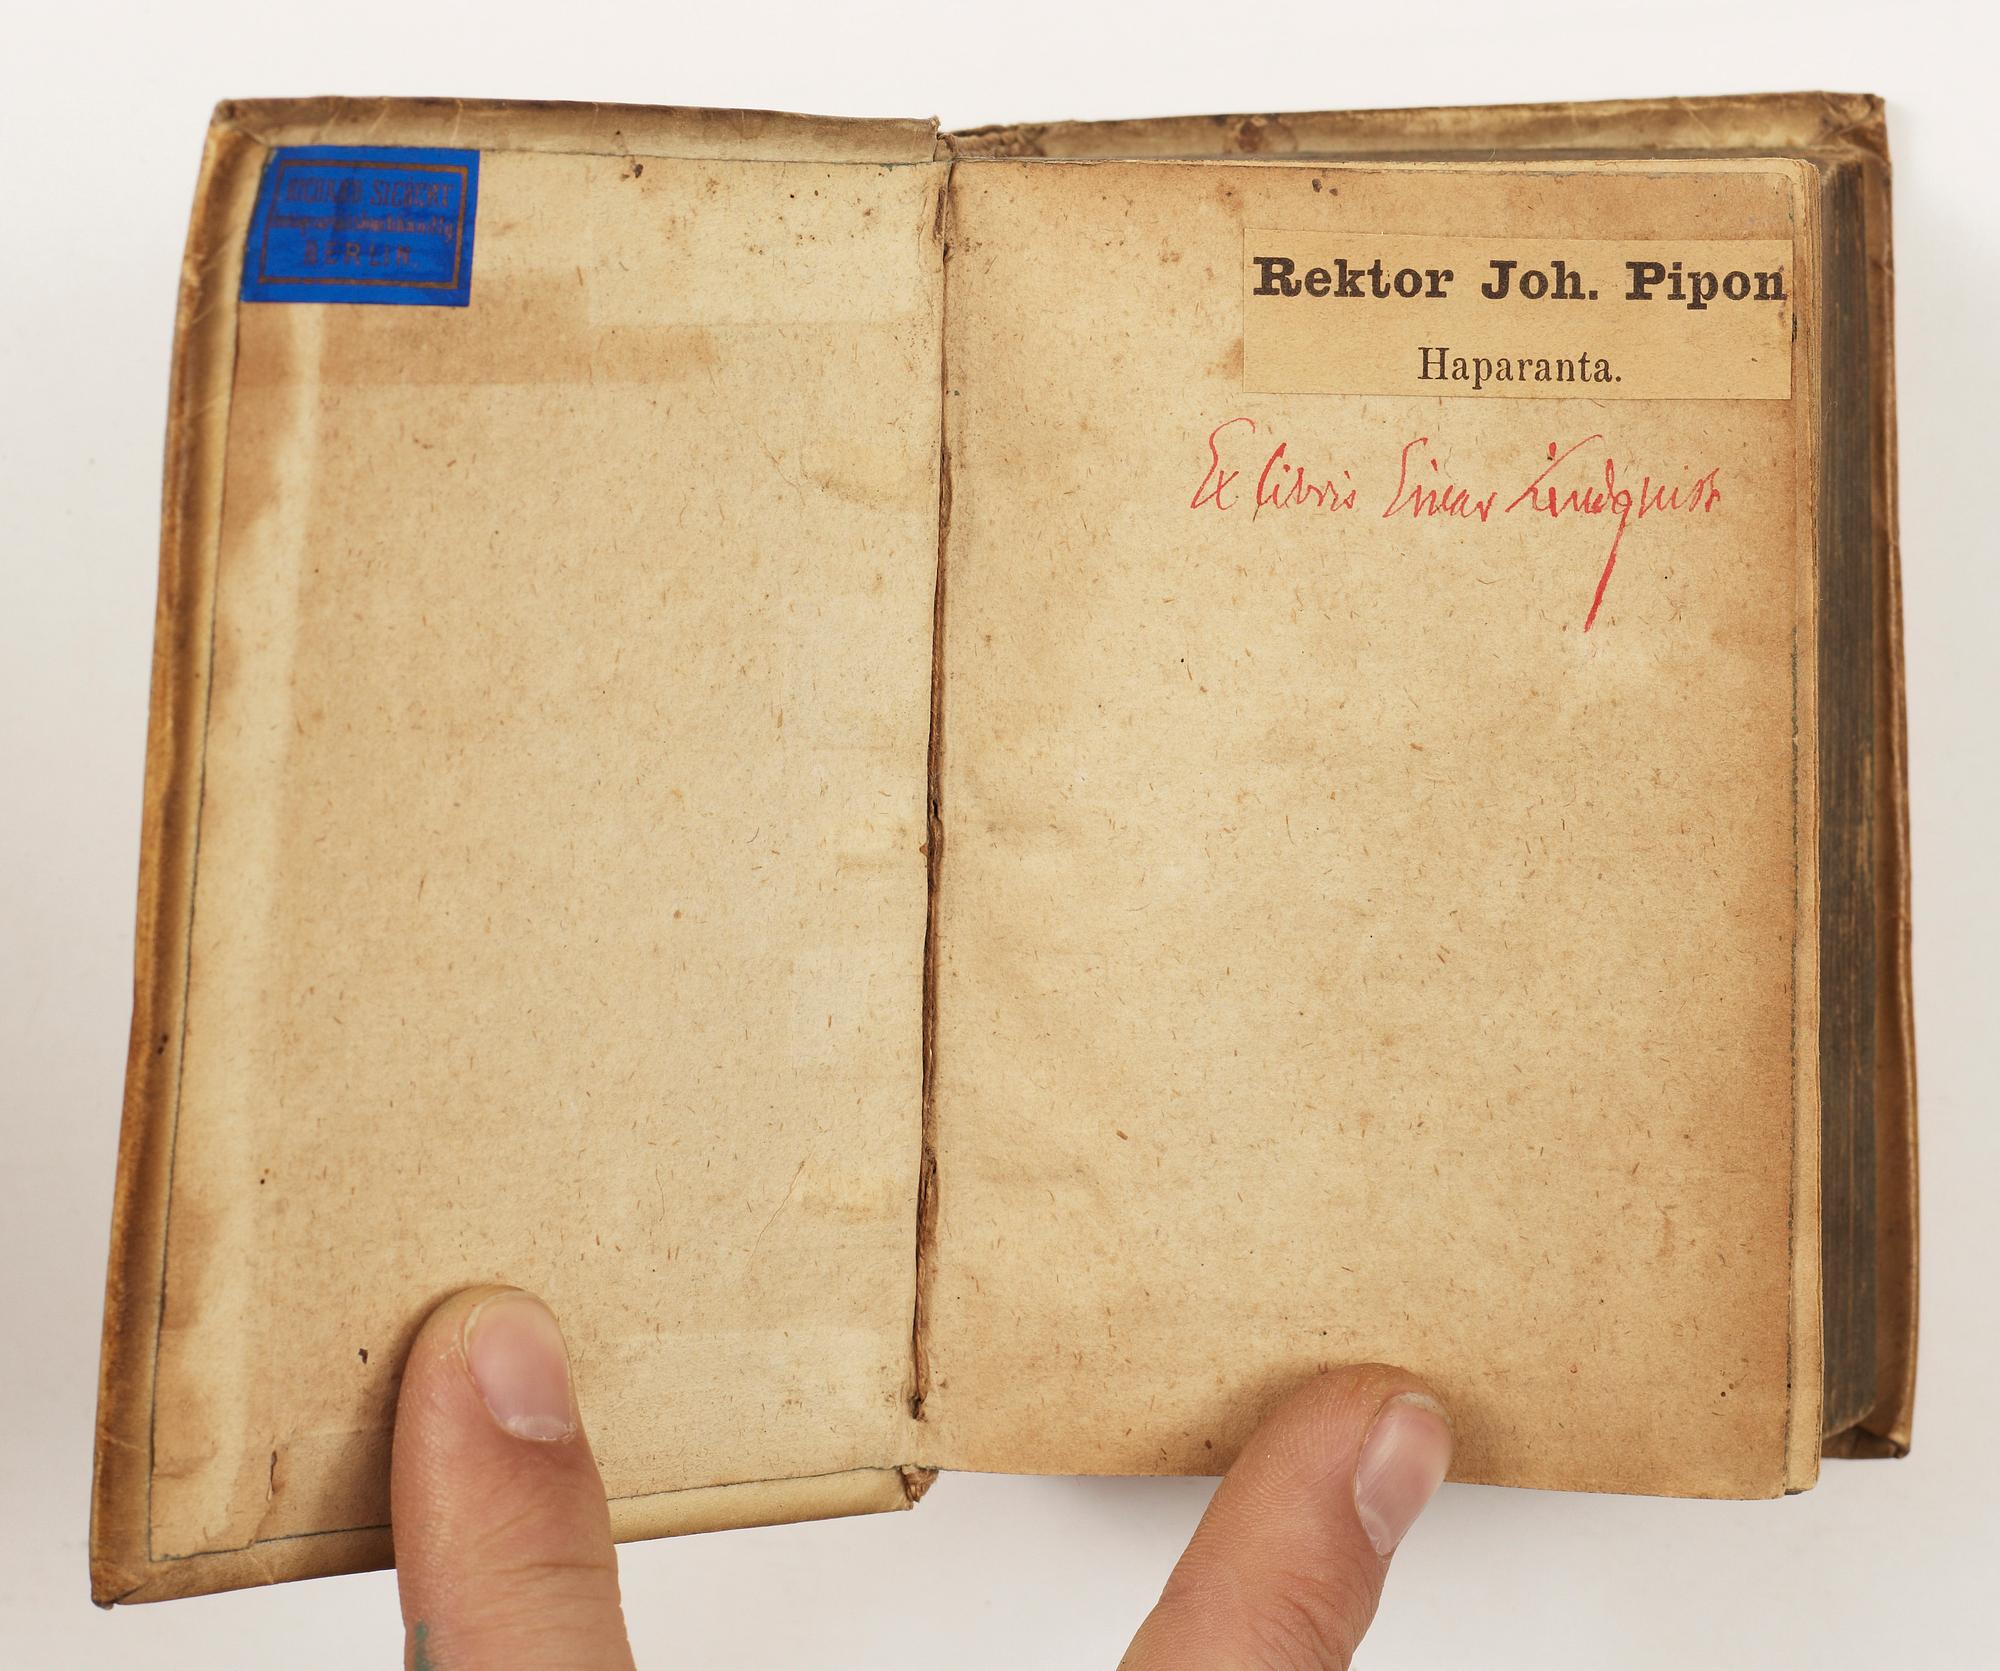 RICHARD SIEBERT
Antiquariatsbuchhandlg
BERLIN.
Rektor Joh. Pipon
Haparanta.
Ex libris Einar Lindquist